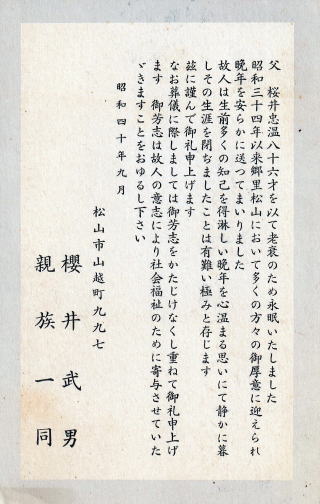 父　桜井忠温八十六才を以て老衰のため永眠いたしました
昭和三十四年以来郷里松山において多くの方々の御厚意に迎えられ
晩年を安らかに送つてまいりました
故人は生前多くの知己を得淋しい晩年を心温まる思いにて静かに暮
しその生涯を閉ぢましたことは有難い極みと存じます
玆に謹んで御礼申上げます
なお葬儀に際しましては御芳志をかたじけなくし重ねて御礼申上げ
ます　御芳志は故人の意志により社会福祉のために寄与させていた
ゞきますことをおゆるし下さい
昭和四十年九月
松山市山越町九九七
櫻井武男
親族一同